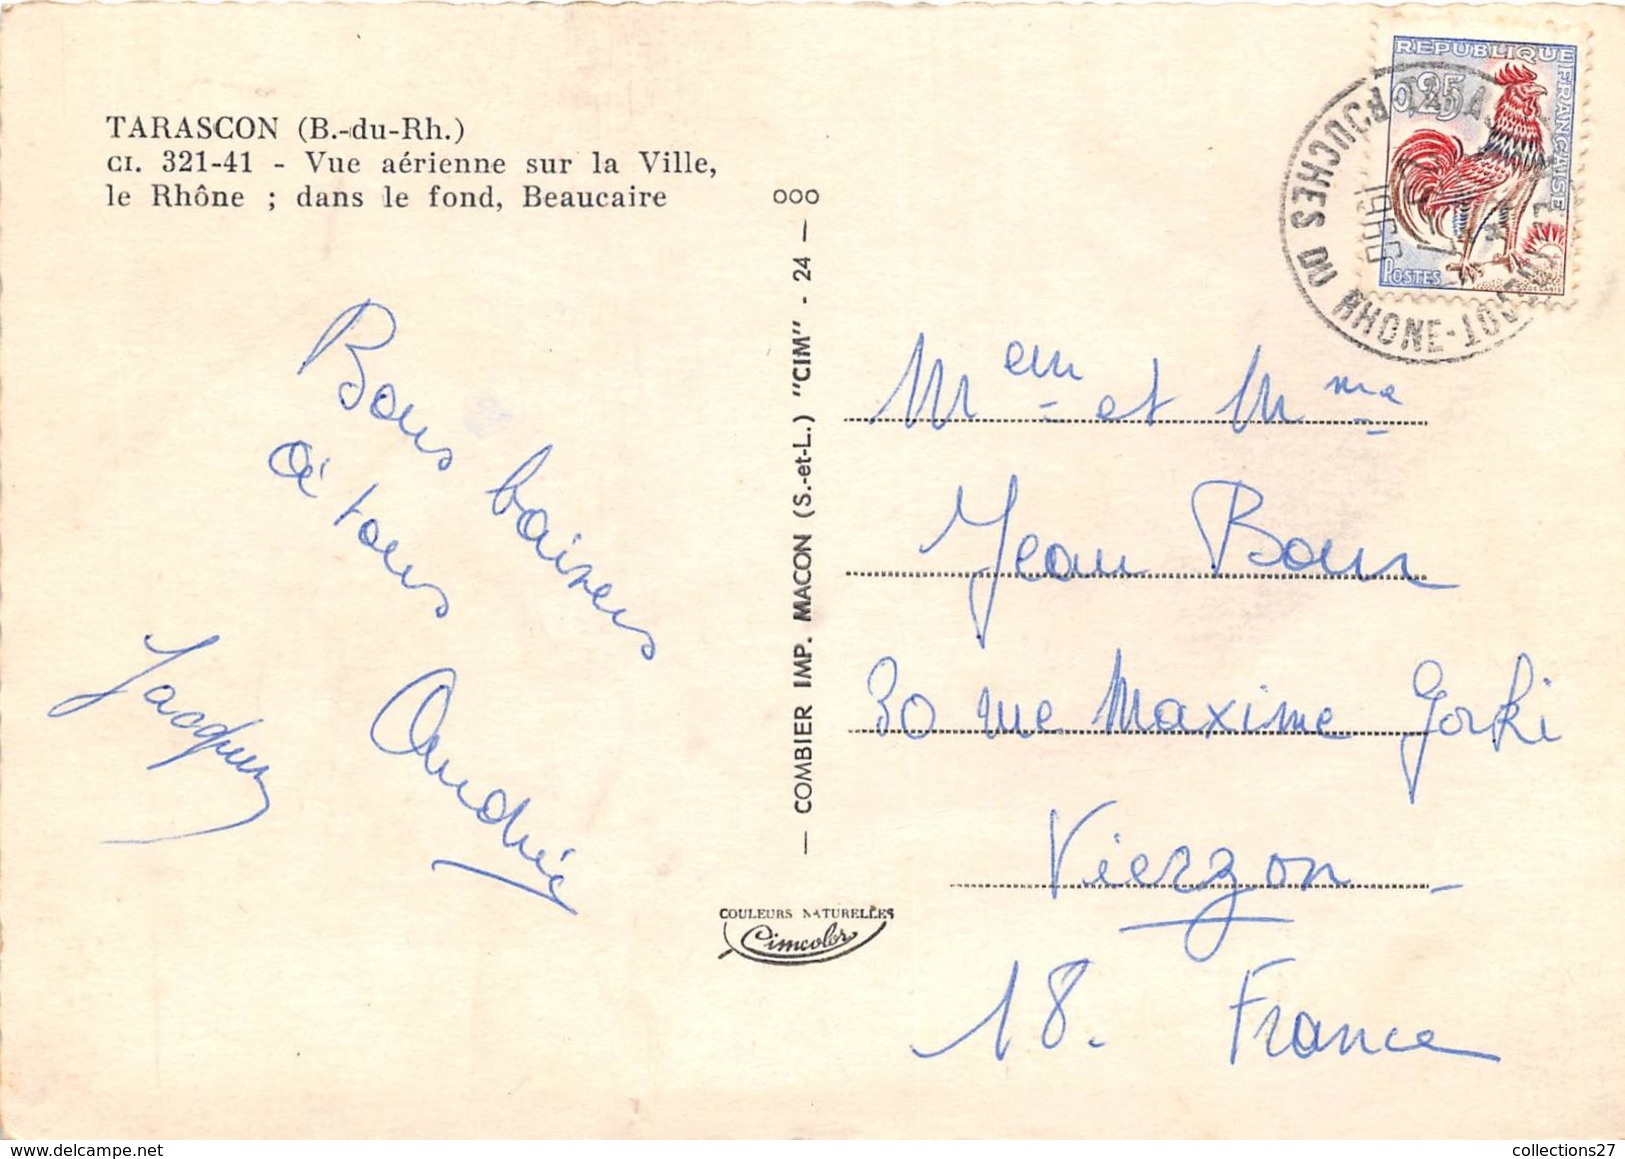 TARASCON (B.-du-Rh.)
CI. 321-41 - Vue aérienne sur la Ville,
le Rhône ; dans le fond, Beaucaire
Bons baisers
à tous
Jacques
Andrée
ooo
— COMBIER IMP. MACON (S.-et-L.) "CIM" - 24 —
COULEURS NATURELLES
Cimcolor
REPUBLIQUE FRANÇAISE
0,25
POSTES
BOUCHES DU RHONE
Mem et Mme
Jean
30 rue Maxime Gorki
Vierzon -
18. France
collections27